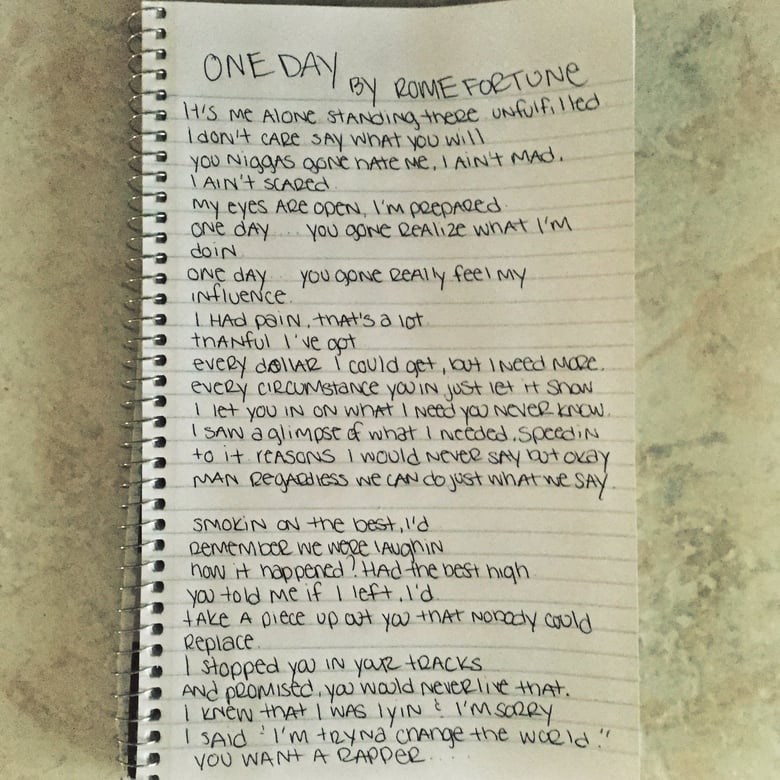 ONE DAY BY ROME FORTUNE
It's me alone standing there unfulfilled
I don't care say what you will
you niggas gone hate me, I ain't mad.
I ain't scared.
My eyes are open, I'm prepared.
One day ... you gone realize what I'm
doin
One day .. you gone really feel my
influence.
I had pain, that's a lot
thanful I've got
every dollar I could get, but I need more.
every circumstance you in just let it show
I let you in on what I need you never know.
I saw a glimpse of what I needed. Speedin
to it reasons I would never say but okay
man regardless we can do just what we say.
Smokin on the best, I'd
remember we were laughin
how it happened? Had the best high
you told me if I left, I'd
take a piece up out you that nobody could
replace.
I stopped you in your tracks
and promised, you would never live that.
I knew that I was lyin & I'm sorry
I said "I'm tryna change the world."
you want a rapper....